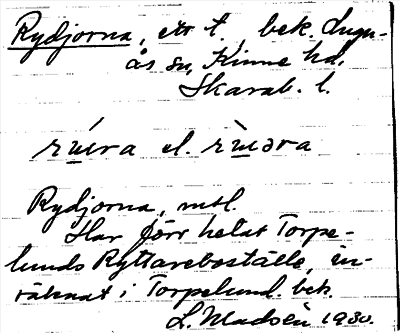 Rydjorna, etr t. bek. Lugn-
ås sn, Kinne hd,
Skarab. l.
Rydjorna, mtl.
Har förr hetat Torpe-
lunds Ryttareboställe, in-
räknat i Torpelund. bek.
L. Madsén 1930.